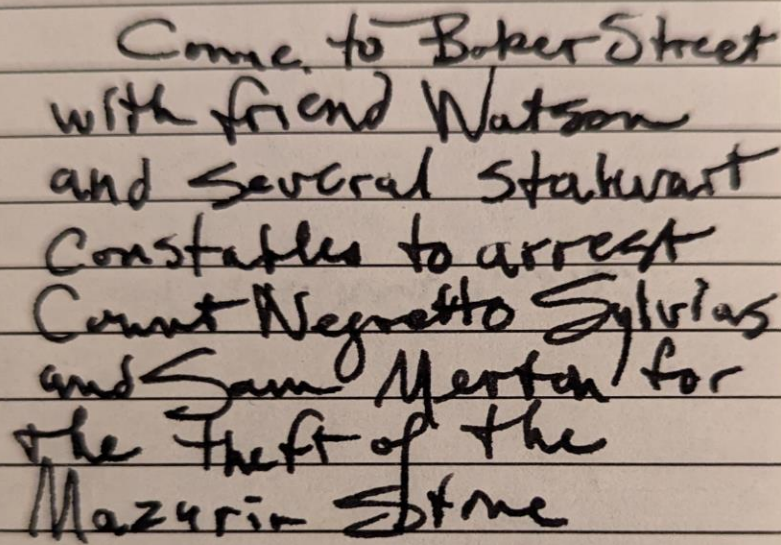 Come to Baker Street
with friend Watson
and several stalwart
Constables to arrest
Count Negretto Sylvias
and Sam Merton for
the Theft of the
Mazarin Stone